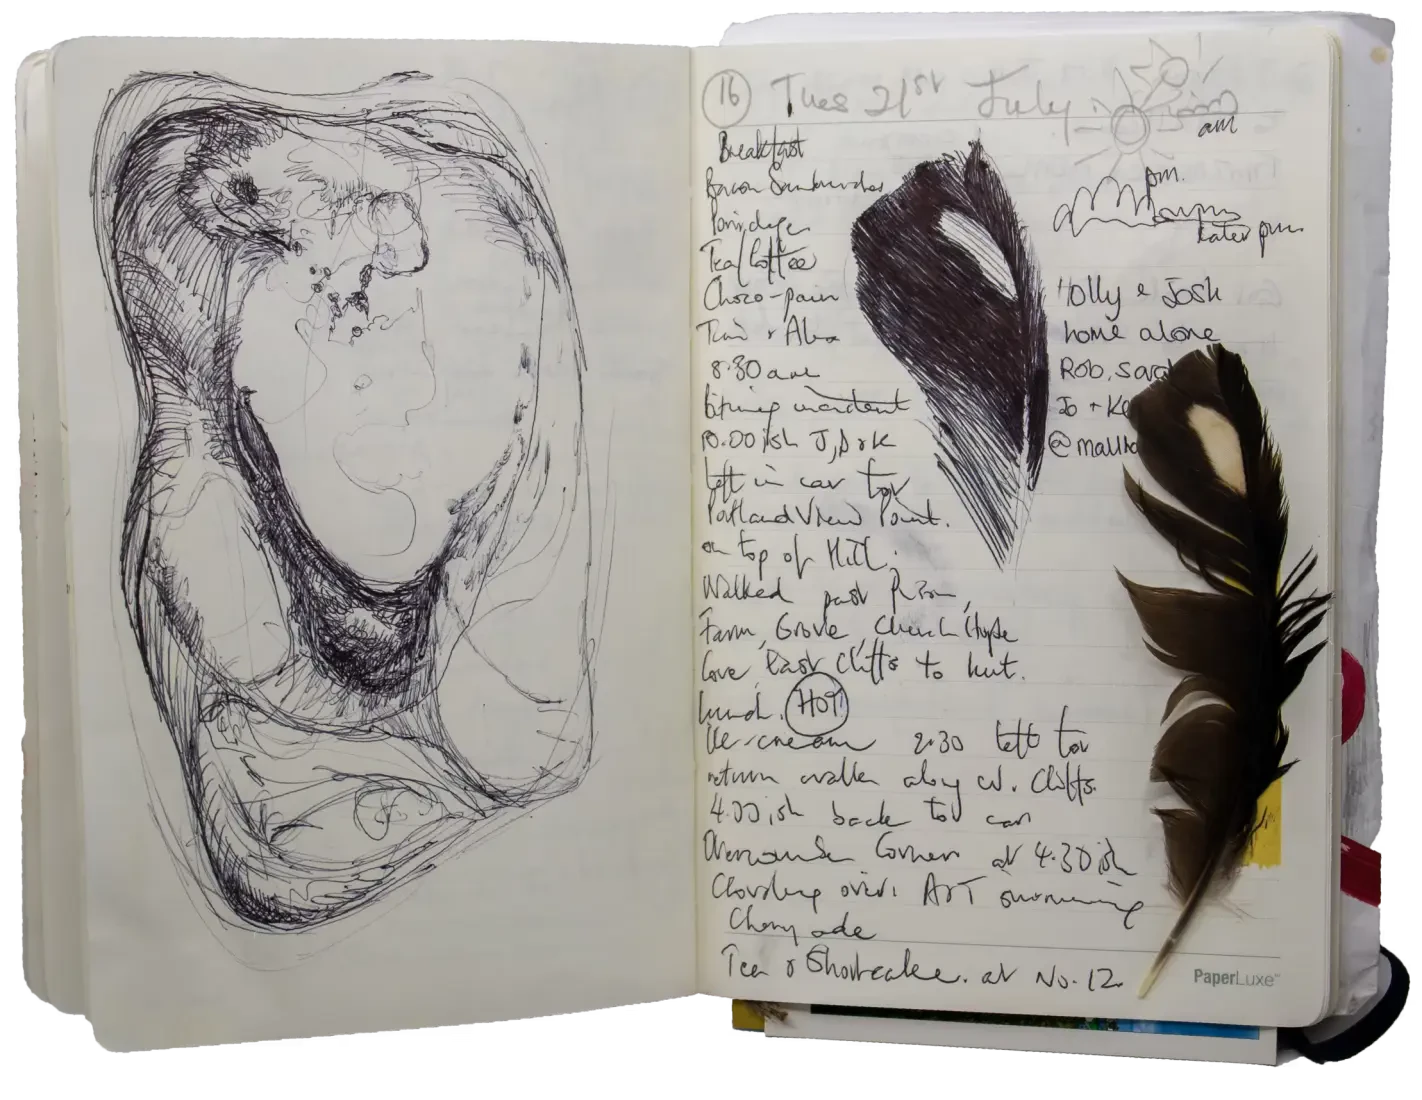 16 Tues 21st July
am
pm.
later pm
Breakfast
Bacon Sandwiches
Porridge
Tea/Coffee
Choco-pain
8.30 am
incident
10.00 ish J, D & K
left in car for
Portland View Point.
on top of Hill.
Walked past Prison,
Farm, Grove, Church Hope
Cove, East Cliffs to hut.
lunch. HOT
Ice-cream 2.30 left for
return walk along W. Cliffs.
4.00 ish back to car
Corner at 4.30 ish
Clouding over. ART swimming
Cherryade
Tea & Shortcake. at No. 12.
Holly & Josh
home alone
Rob, Sara
Jo + Ke
@ mallha
PaperLuxe™